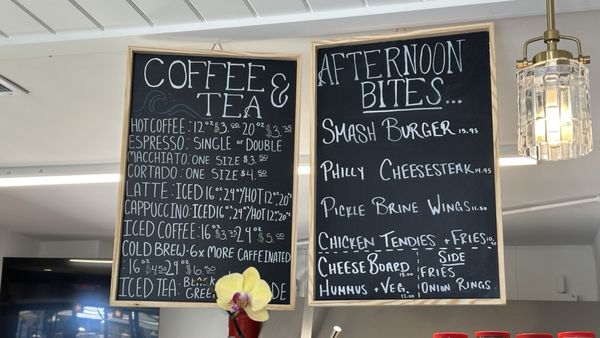 COFFEE &
TEA
HOT COFFEE: 12oz $3.00 20oz $3.75
ESPRESSO: SINGLE or DOUBLE
MACCHIATO: ONE SIZE $3.
CORTADO: ONE SIZE $4.50
LATTE: ICED 16oz, 24oz/HOT 12oz, 20oz
CAPPUCCINO: ICED 16oz, 24oz/HOT 12oz, 20oz
ICED COFFEE: 16oz $3.75 24oz $5.00
COLD BREW-6x MORE CAFFEINATED
: 16oz $4.50 24oz $6.50
ICED TEA:
AFTERNOON
BITES...
SMASH BURGER 15.95
PHILLY CHEESESTEAK 14.95
PICKLE BRINE WINGS 11.50
CHICKEN TENDIES + FRIES
CHEESE BOARD
HUMMUS + VEG.
SIDE
FRIES
ONION RINGS